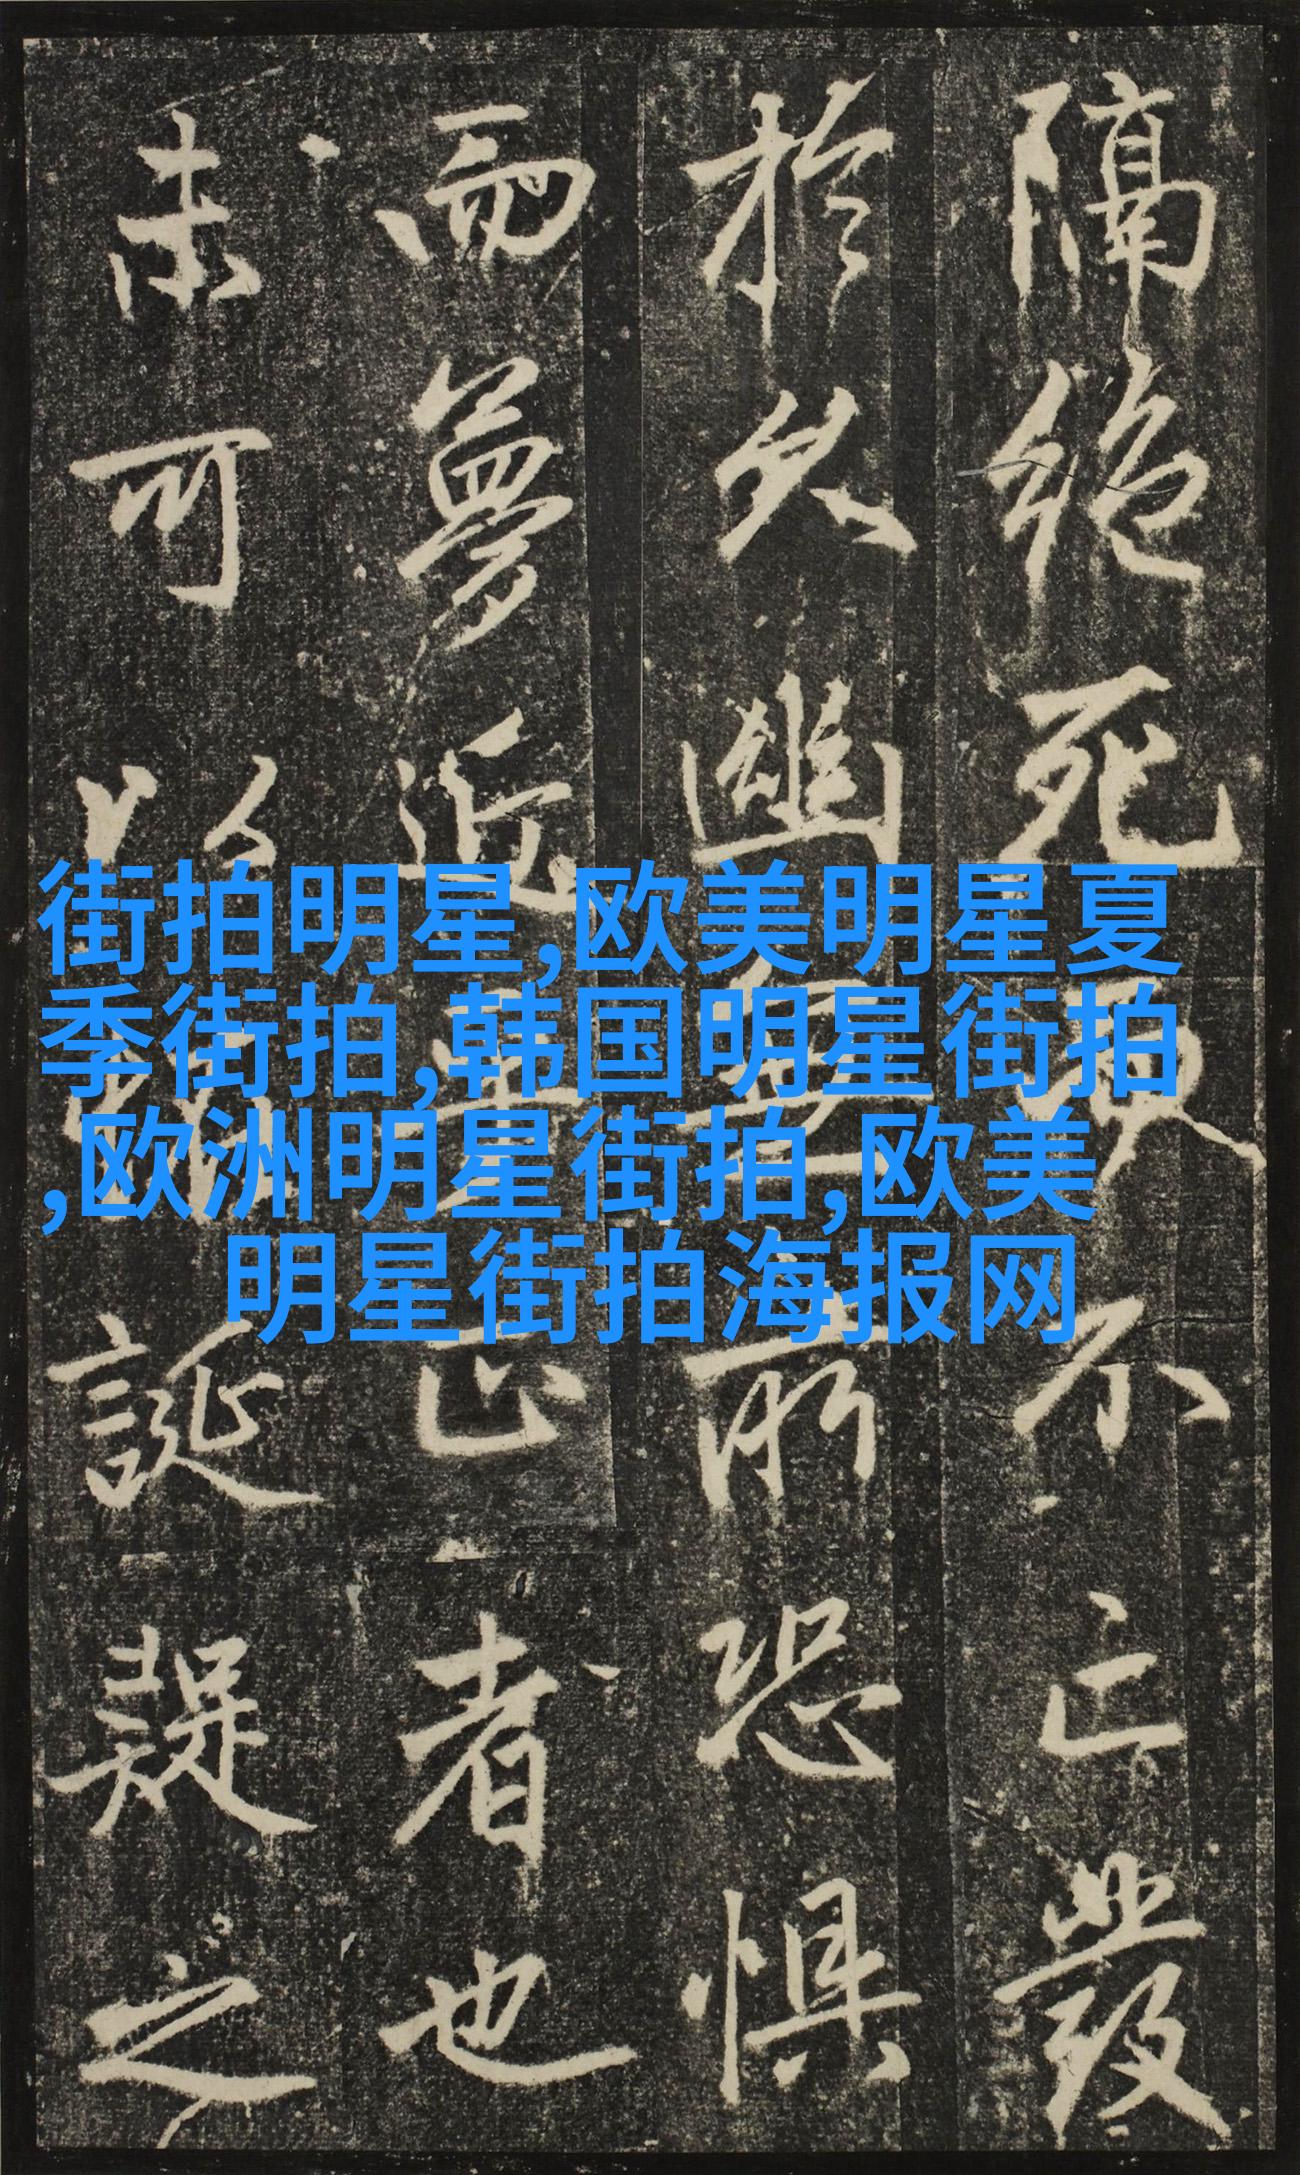 隔絶死不亡發
於久幽所恐懼
而夢近正者也
未可以誕疑之
街拍明星,欧美明星夏
季街拍,韩国明星街拍
,欧洲明星街拍,欧美
明星街拍海报网